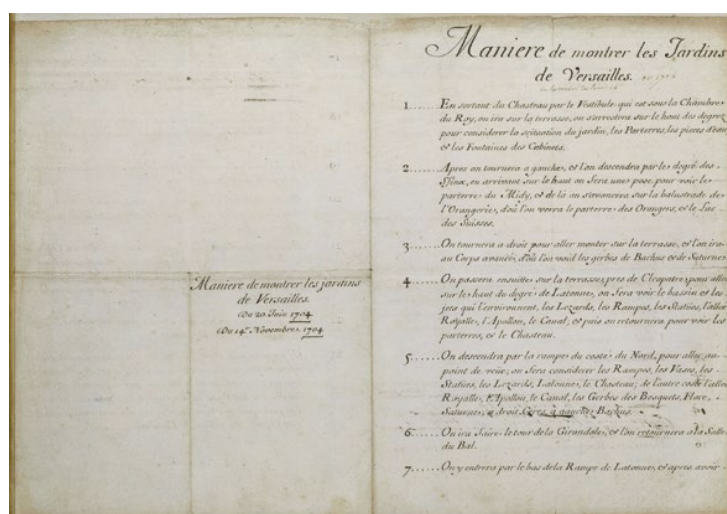 Maniere de montrer les jardins
de Versailles.
Du 20 Juin 1704
Du 14.e Novembre, 1704
Maniere de montrer les Jardins
de Versailles.
1......En sortant du Chasteau par le Vestibule qui est sous la Chambre
du Roy, on ira sur la terrasse, on s'arrestera sur le haut des degrez
pour considerer la scituation du jardin, les Parterres, les pieces d'eau
et les Fontaines des Cabinets.
2......Apres on tournera a gauche, et l'on descendra par le degré des
Sfinx, en arrivant sur le haut on fera une pose pour voir le
parterre du Midy, et de là on s'avancera sur la balustrade de
l'Orangerie, d'où l'on verra le parterre des Orangers, et le Lac
des Suisses.
3......On tournera a droit pour aller monter sur la terrasse, et l'on ira
au Corps avancé, d'où l'on void les gerbes de Bachus et de Saturne,
4......On passera ensuitte sur la terrasse, pres de Cleopatre, pour aller
sur le haut du degré de Latonne, on fera voir le bassin et les
jets qui l'environnent, les Lezards, les Rampes, les Statües, l'allée
Royalle, l'Apollon, le Canal, et puis on retournera pour voir les
parterres, et le Chasteau.
5......On descendra par la rampe du costé du Nord, pour aller au
point de veüe, on fera considerer les Rampes, les Vases, les
Statües, les Lezards, Latonne, le Chasteau; de l'autre costé l'allée
Royalle, l'Apollon, le Canal, les Gerbes des Bosquets, Flore,
Saturne, a droit Ceres, a gauche Bachus.
6......On ira faire le tour de la Girandole, et l'on retournera a la Salle
du Bal.
7......On y entrera par le bas de la Rampe de Latonne, et apres avoir